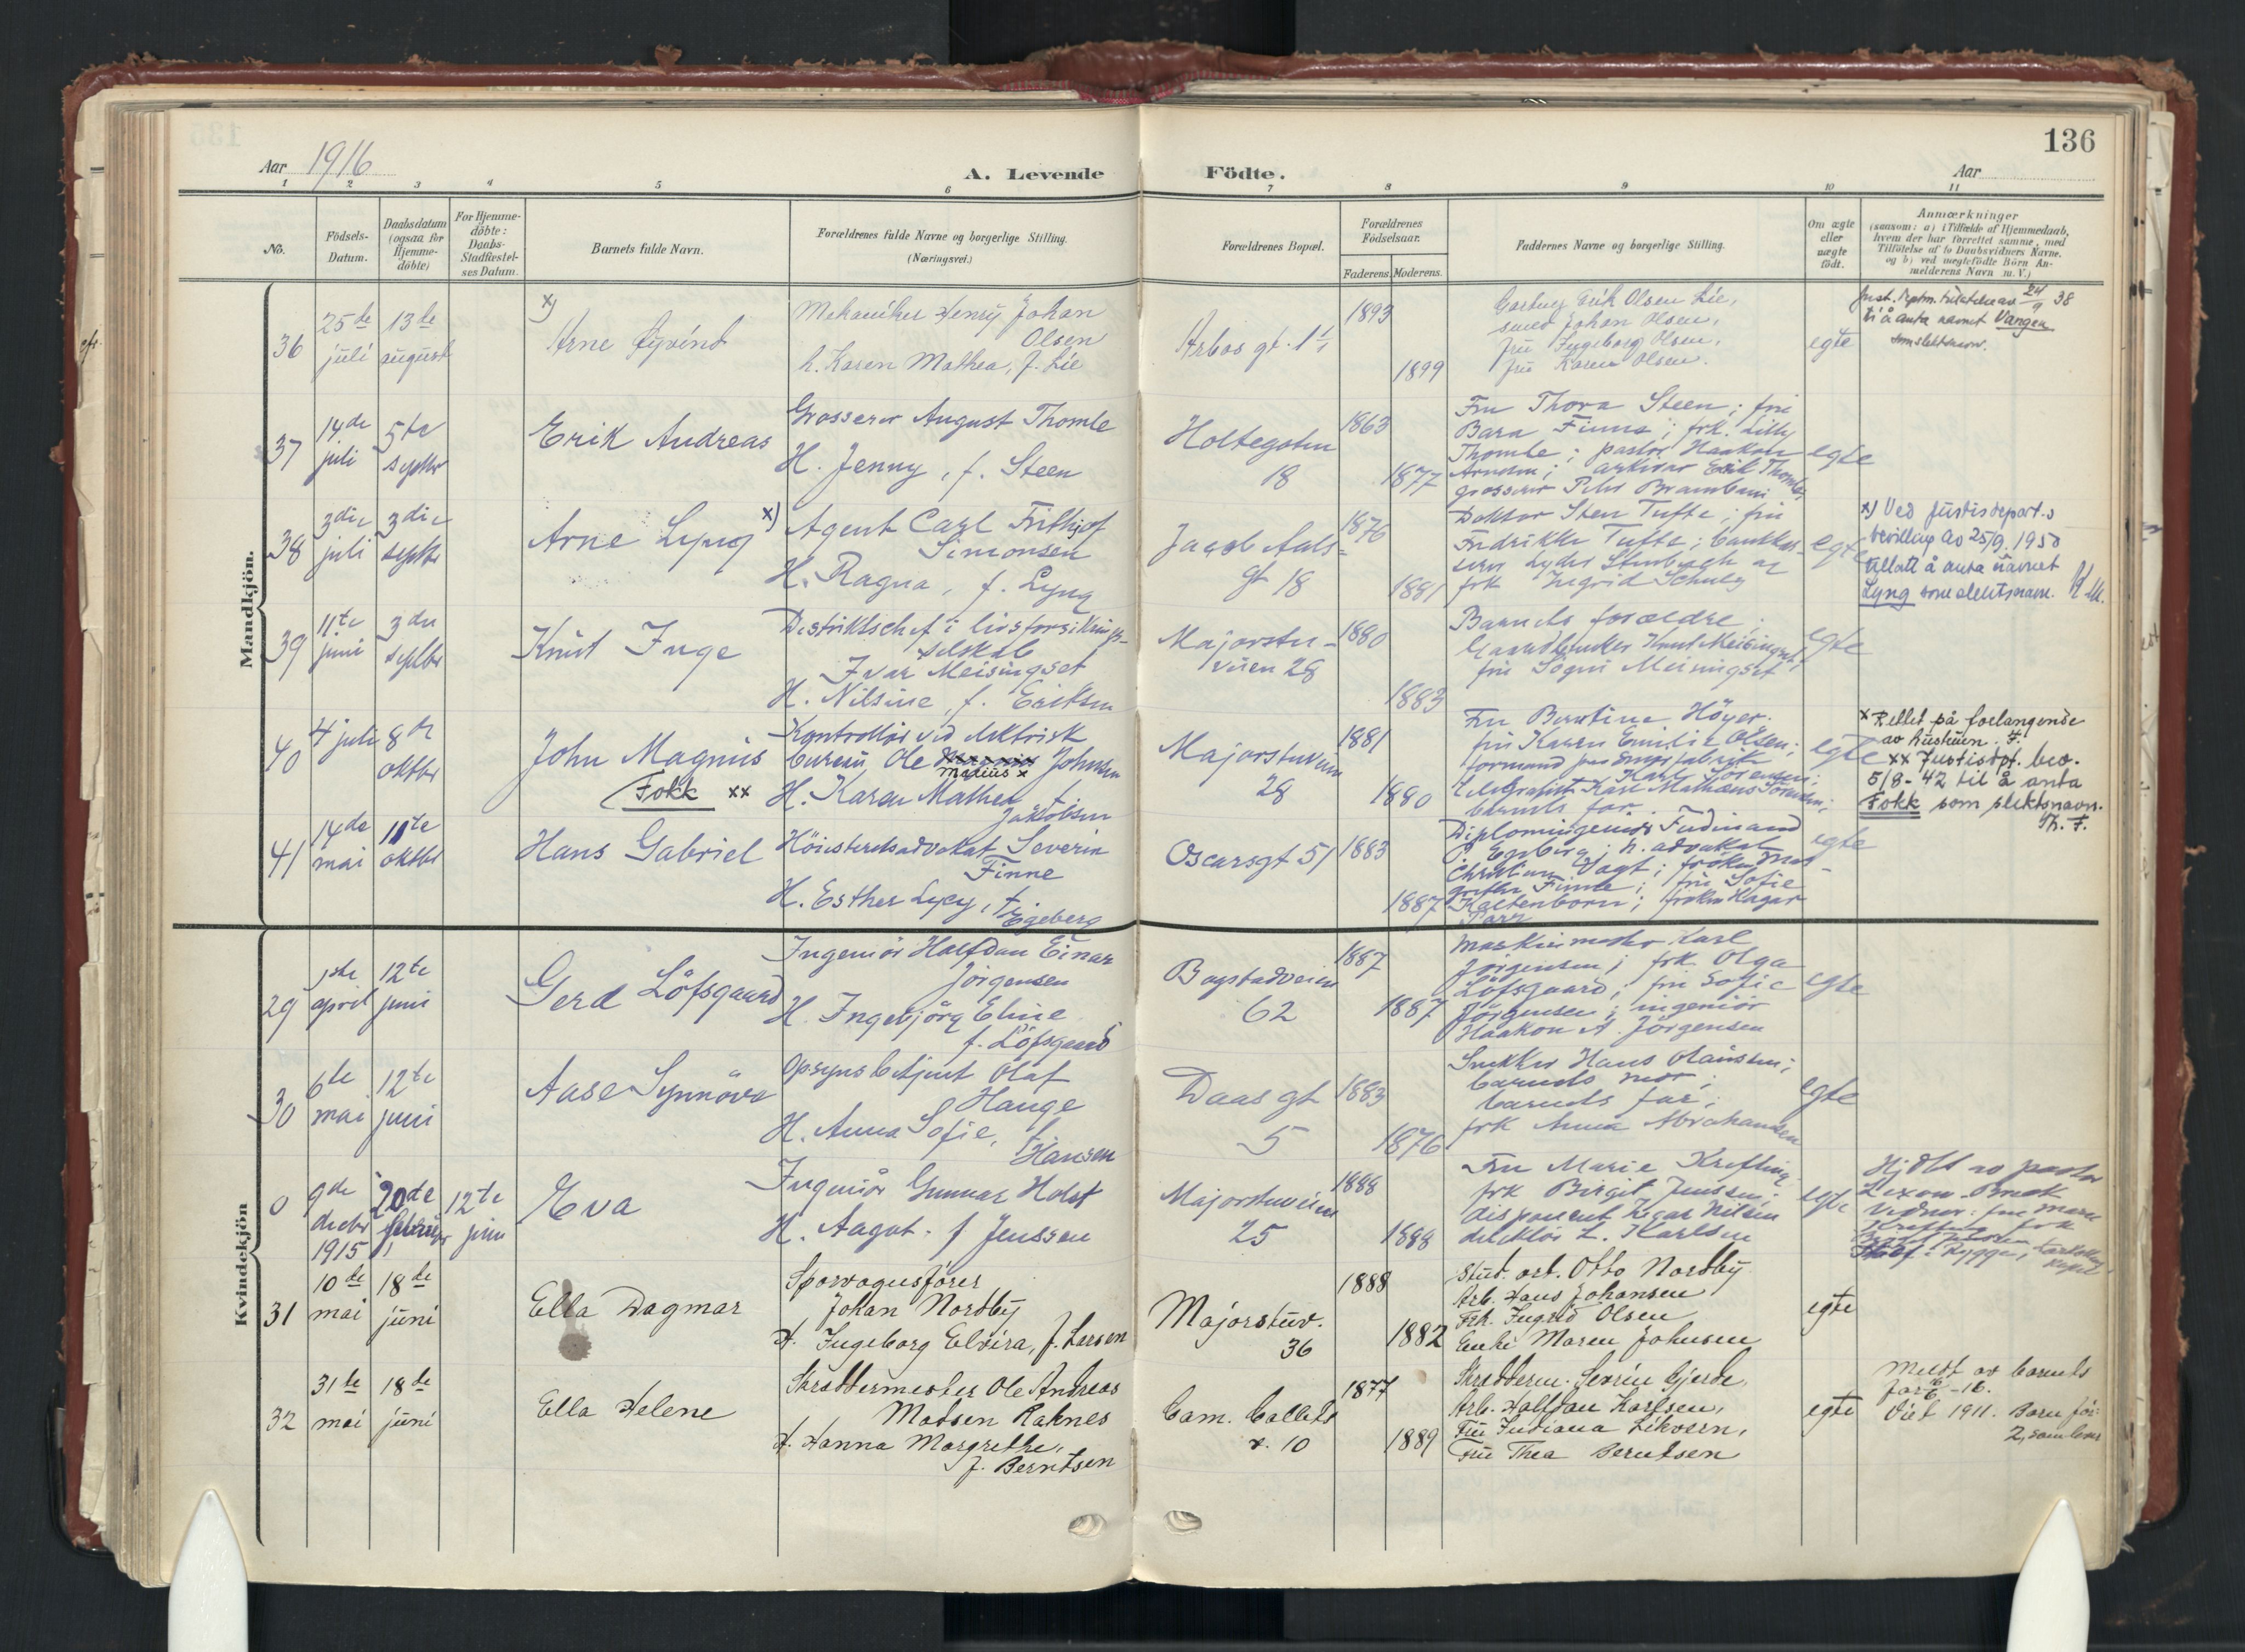 136
Aar 1916
A. Levende
Födte.
Aar
1 2 3 4 5 6 7 8 9 10 11
No.
Födsels-
Datum.
Daabsdatum
(ogsaa for
Hjemme-
döbte)
For Hjemme-
döbte:
Daabs-
Stadfæstel-
ses Datum.
Barnets fulde Navn.
Forældrenes fulde Navne og borgerlige Stilling.
(Næringsvei.)
Forældrenes Bopæl.
Forældrenes
Födselsaar.
Faderens. Moderens.
Faddernes Navne og borgerlige Stilling.
Om ægte
eller
uægte
födt.
Anmærkninger
(saasom: a) i Tilfælde af Hjemmedaab,
hvem der har forrettet samme, med
Tilföielse af to Daabsvidners Navne.
og b) ved uægtefödte Börn An-
melderens Navn m. V.)
Mandkjön.
36
25de
juli
13de
august
x)
Arne Eyvind
Mekaniker Henry Johan
Olsen
h. Karen Mathea, f. Lie
Arbos gt. 1
1893
1899
Erik Olsen Lie,
smed Johan Olsen,
fru Ingeborg Olsen,
fru Karen Olsen.
egte
24/9 38
til å anta navnet Vangen
som slektsnavn.
37
14de
juli
5te
septbr
Erik Andreas
Grosserer August Thomle
H. Jenny, f. Steen
Holtegaten
18
1863
1877
Fru Thora Steen; fru
Bara Finne; frk. Lilly
Thomle; pastor Haakon
Arnesen; arkivar Erik Thomle;
grosserer Peter
egte
38
3die
juli
3die
septbr
Arne Lyng x)
Agent Carl Frithjof
Simonsen
H. Ragna, f. Lyng
Jacob Aals
gt 18
1876
1881
Doktor Sten Tufte; fru
Fredrikke Tufte;
frk Ingrid Schulz
egte
x) Ved Justisdepart.s
bevilling av 25/9.1950
tillatt å anta navnet
Lyng som slektsnavn.
39
11te
juni
3die
septbr
Knut Inge
Distriktschef i livsforsikrings-
selskab
Ivar Meisingset
H. Nilsine, f. Eriksen
Majorstu-
veien 28
1880
1883
Barnets forældre;
Gaardbruker Knut Meisingset;
fru Sogni Meisingset
egte
40
4 juli
8de
oktbr
John Magnus
Fokk xx
Kontrollör ved elektrisk
bureau Ole Johnsen
Matius x
H. Karen Mathea f.
Jakobsen
Majorstuveien
28
1881
1880
Fru Berntine Höyer.
fru Karen Emilie Olsen;
formand
Karl Sörensen;
Telegrafist Karl Mathæus Sörensen;
barnets far.
egte
x Rettet på forlangende
av hustruen. F.
xx Justisdpt. bev.
5/8-42 til å anta
Fokk som slektsnavn.
Th. F.
41
14de
mai
11te
oktbr
Hans Gabriel
Höiesteretsadvokat Severin
Finne
H. Esther Lycy, f.
Egeberg
Oscarsgt 51
1883
1887
Diplomingeniör Ferdinand
Egeberg; h. advokat
Christian Vogt; fröken Mar-
grethe Finne; fru Sofie
Kaltenborn; fröken Hagar
Parr
egte
Kvindekjön
29
1ste
april
12te
juni
Gerd Löfsgaard
Ingeniör Halfdan Einar
Jörgensen
H. Ingebjörg Eline
f. Löfsgaard
Bogstadveien
62
1887
1887
Maskinmester Karl
Jörgensen; frk. Olga
Löfsgaard; fru Sofie
Jörgensen; ingeniör
Haakon A. Jörgensen
egte
30
6te
mai
12te
juni
Aase Synnöve
Opsynsbetjent Olaf
Hauge
H. Anna Sofie, f.
Hansen
Daas gt
5
1883
1876
Snekker Hans Olaussen;
barnets mor;
barnets far;
frk Anna Abrahamsen
egte
0
9de
decbr
1915
20de
februar
12te
juni
Eva
Ingeniör Gunnar Holst
H. Aagot. f Jenssen
Majorstuveien
25
1888
1888
Fru Marie Krefting
frk Birgit Jenssen;
disponent Edgar Nilsen
direktör L. Karlsen
egte
Hjdöbt av pastor
Vidner: fru Marie
Krefting frk
31
10de
mai
18de
juni
Ella Dagmar
Sporvognsförer
Johan Nordby
H. Ingeborg Elvira, f. Larsen
Majorstuv.
36
1888
1882
Stud. art. Otto Nordby
Arb. Hans Johansen
Frk. Ingrid Olsen
Enke Maren Johnsen
egte
32
31te
mai
18de
juni
Ella Helene
Skræddermester Ole Andreas
Madsen Raknes
H. Hanna Margrethe,
f. Berntsen
Cam. Colletts
v. 10
1877
1889
Skrædderm. Severin Gjerde,
Arb. Halfdan Karlsen,
Fru Indiana Likvern,
Fru Thea Berntsen
egte
Meldt av barnets
far 16/6-16.
Viet 1911. Barn för:
2, som lever